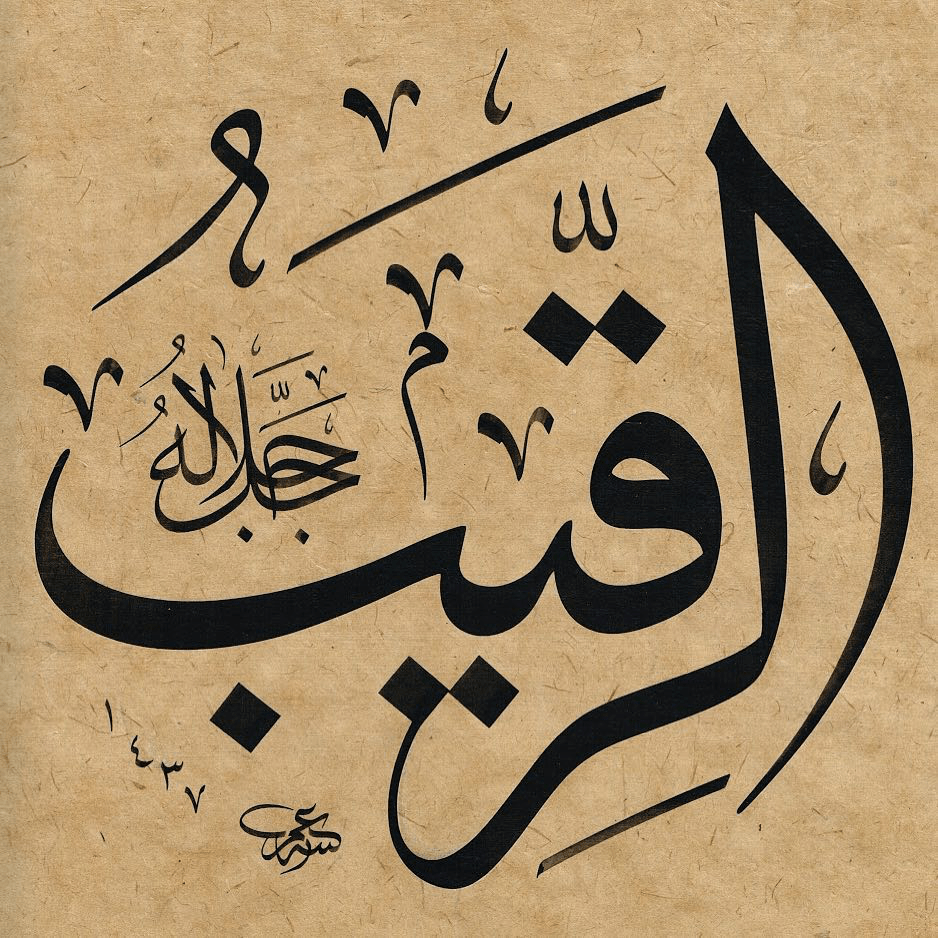 الرَّقِيبُ
جَلَّ جَلَالُهُ
١٤٣٧